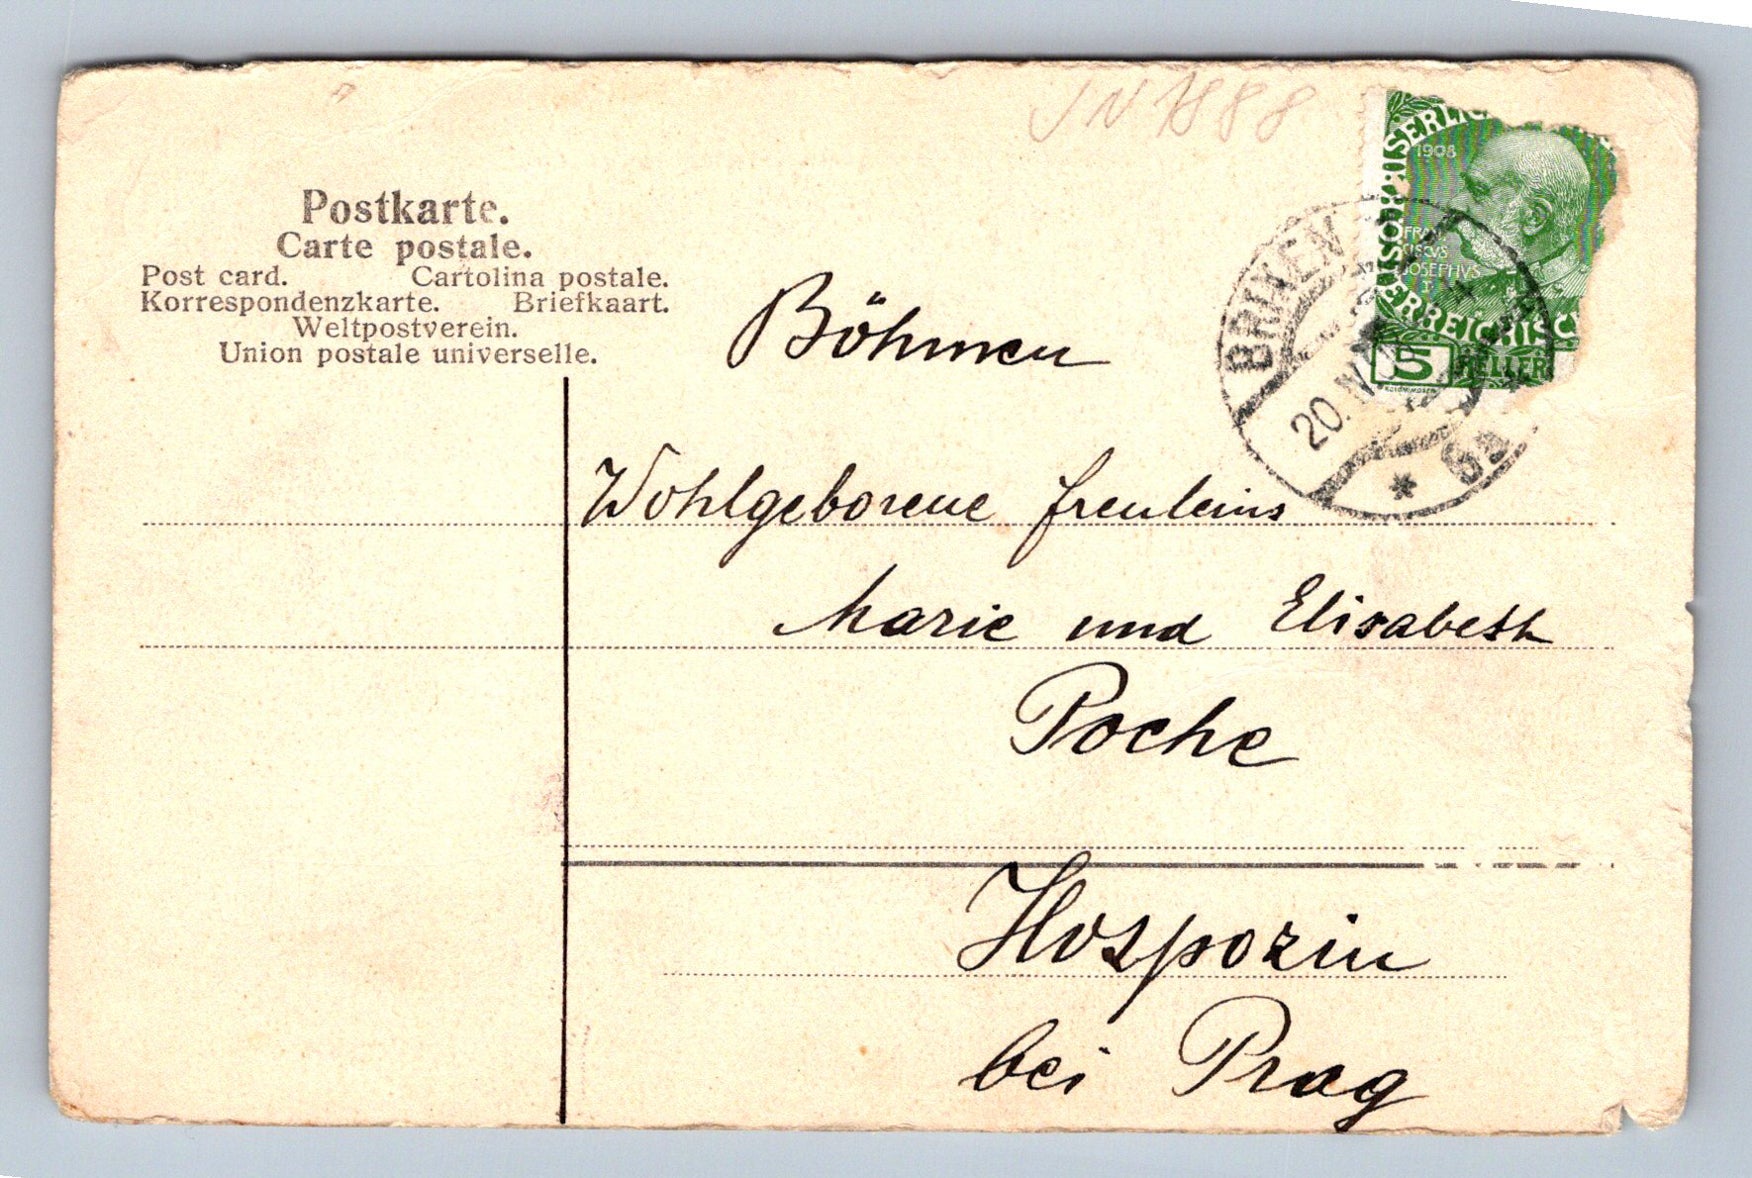 JN 1888
Postkarte.
Carte postale.
Post card. Cartolina postale.
Korrespondenzkarte. Briefkaart.
Weltpostverein.
Union postale universelle.
1908
FRAN
CISCVS
JOSEPHVS
I
5 HELLER
BRIXEN
20.
Böhmen
Wohlgeborene freuleins
Marie und Elisabeth
Poche
Hospozin
bei Prag